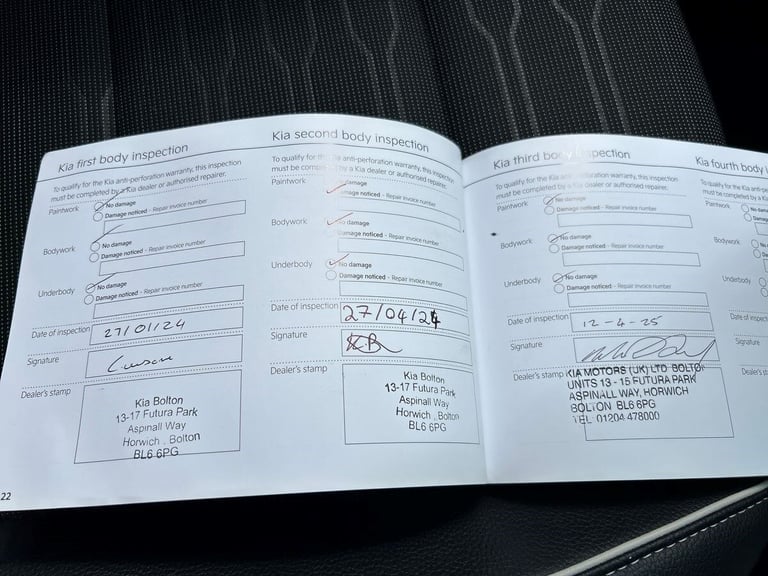 Kia first body inspection
To qualify for the Kia anti-perforation warranty, this inspection
must be completed by a Kia dealer or authorised repairer.
Paintwork
No damage
Damage noticed - Repair invoice number
Bodywork
No damage
Damage noticed - Repair invoice number
Underbody
No damage
Damage noticed - Repair invoice number
Date of inspection
27/01/24
Signature
Dealer's stamp
Kia Bolton
13-17 Futura Park
Aspinall Way
Horwich , Bolton
BL6 6PG
22
Kia second body inspection
To qualify for the Kia anti-perforation warranty, this inspection
must be completed by a Kia dealer or authorised repairer.
Paintwork
damage
Damage noticed - Repair invoice number
Bodywork
No damage
Damage noticed - Repair invoice number
Underbody
No damage
Damage noticed - Repair invoice number
Date of inspection
27/04/24
Signature
Dealer's stamp
Kia Bolton
13-17 Futura Park
Aspinall Way
Horwich , Bolton
BL6 6PG
Kia third body inspection
To qualify for the Kia anti-perforation warranty, this inspection
must be completed by a Kia dealer or authorised repairer.
Paintwork
No damage
Damage noticed - Repair invoice number
Bodywork
No damage
Damage noticed - Repair invoice number
Underbody
No damage
Damage noticed - Repair invoice number
Date of inspection
12-4-25
Signature
Dealer's stamp
KIA MOTORS (UK) LTD BOLTON
UNITS 13 - 15 FUTURA PARK
ASPINALL WAY, HORWICH
BOLTON BL6 6PG
TEL: 01204 478000
Kia fourth body
To qualify for the Kia anti-
must be completed by a
Paintwork
No
Bodywork
Underbody
Date of inspect
Signature
Dealer's